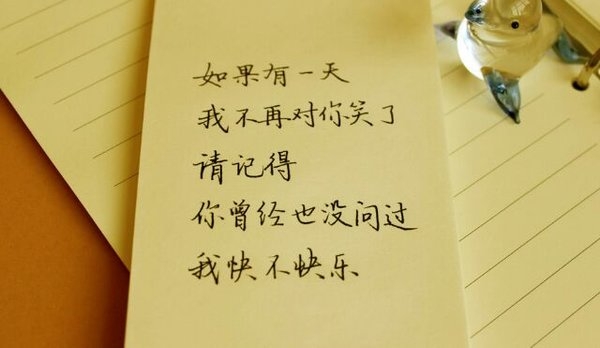 如果有一天
我不再对你笑了
请记得
你曾经也没问过
我快不快乐